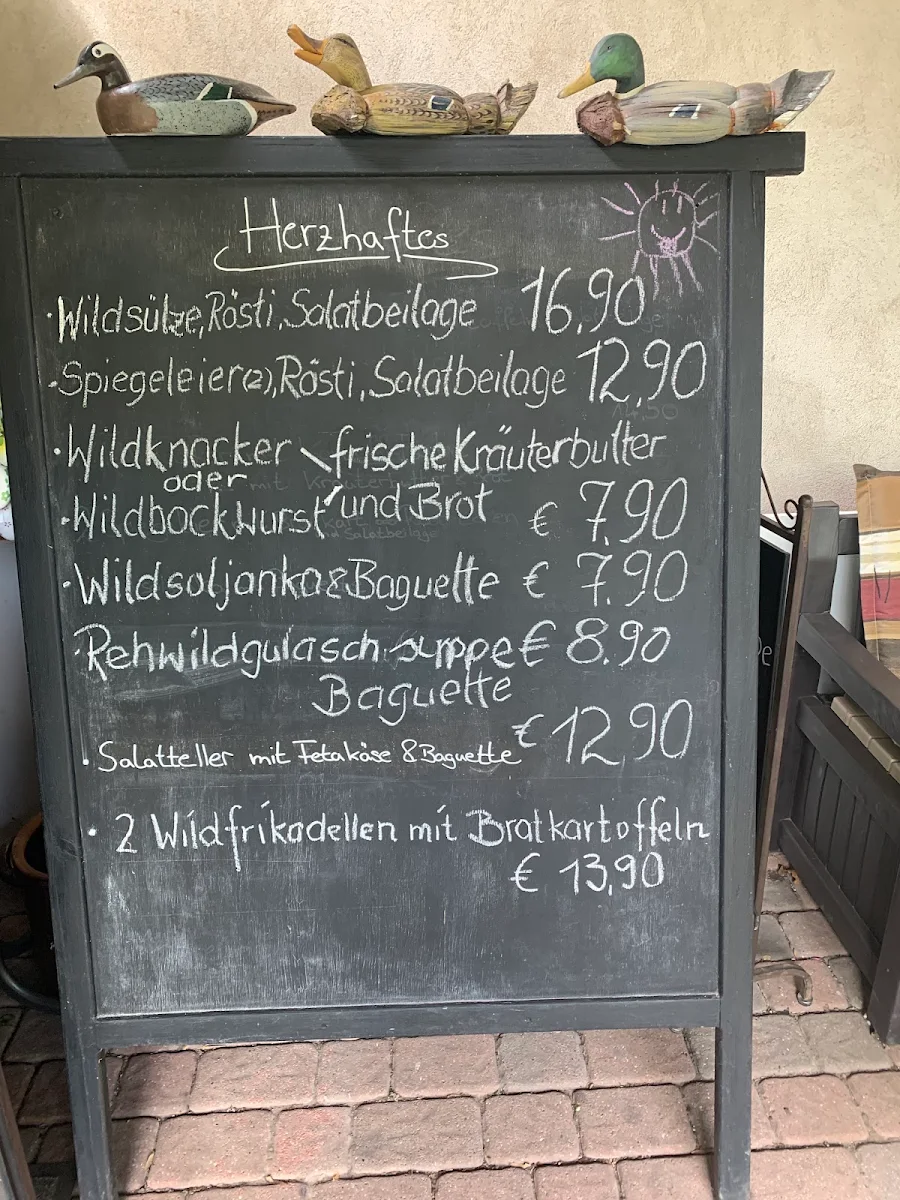 Herzhaftes
· Wildsülze, Rösti, Salatbeilage 16,90
· Spiegeleier(2), Rösti, Salatbeilage 12,90
· Wildknacker \ frische Kräuterbutter
oder
· Wildbockwurst / und Brot € 7.90
· Wildsoljanka & Baguette € 7.90
· Rehwildgulasch-suppe € 8.90
Baguette
· Salatteller mit Fetakäse & Baguette € 12,90
· 2 Wildfrikadellen mit Bratkartoffeln
€ 13,90